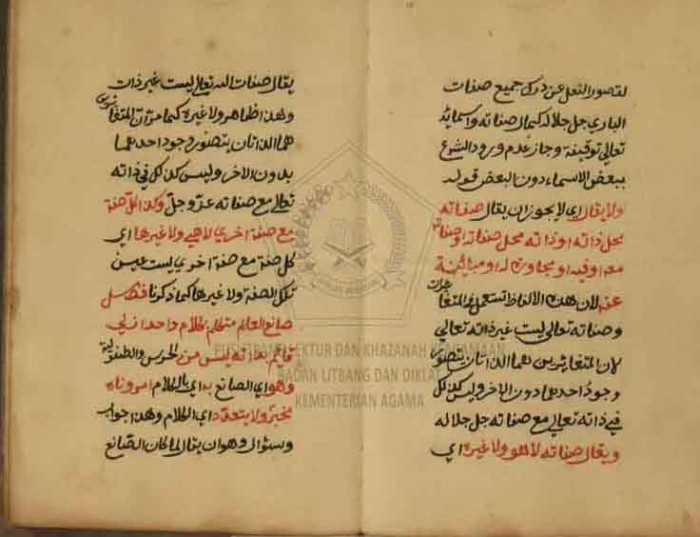 لقصور العقل عن درك جميع صفات
الباري جل جلاله كمال صفاته واسمائه
تعالى توقيفية وجاز عدم ورود الشرع
ببعض الاسماء دون البعض قوله
ولا يقال اي لا يجوز ان يقال صفاته
محل ذاته او ذاته محل صفاته او صفاته
معه او فيه او مجاورة له او مباينة
عنه لان هذه الالفاظ تستعمل في المتغايرات
وصفاته تعالى ليست غير ذاته تعالى
لان المتغايرين هما اللذان يتصور
وجود احدهما دون الاخر وليس كذلك
في ذاته تعالى مع صفاته جل جلاله
ويقال صفاته لا هو ولا غيره اي
يقال صفات الله تعالى ليست غير ذات
وهذا ظاهر ولا غيره كما مر ان المتغايرين
هما اللذان يتصور وجود احدهما
بدون الاخر وليس كذلك في ذاته
تعالى مع صفاته عز وجل وكذا كل صفة
مع صفة اخرى لا هي ولا غيرها اي
كل صفة مع صفة اخرى ليست عين
تلك الصفة ولا غيرها كما ذكرنا فصل
صانع العالم متكلم بكلام واحد ازلي
قايم بذاته ليس من الحرس والطفولية
وهو اي الصانع به اي بالكلام امر وناه
مخبر ولا يتعدد اي الكلام وهذا جواب
وسؤال وهو ان يقال لما كان الصانع
PUSLITBANG LEKTUR DAN KHAZANAH KEAGAMAAN
BADAN LITBANG DAN DIKLAT
KEMENTERIAN AGAMA